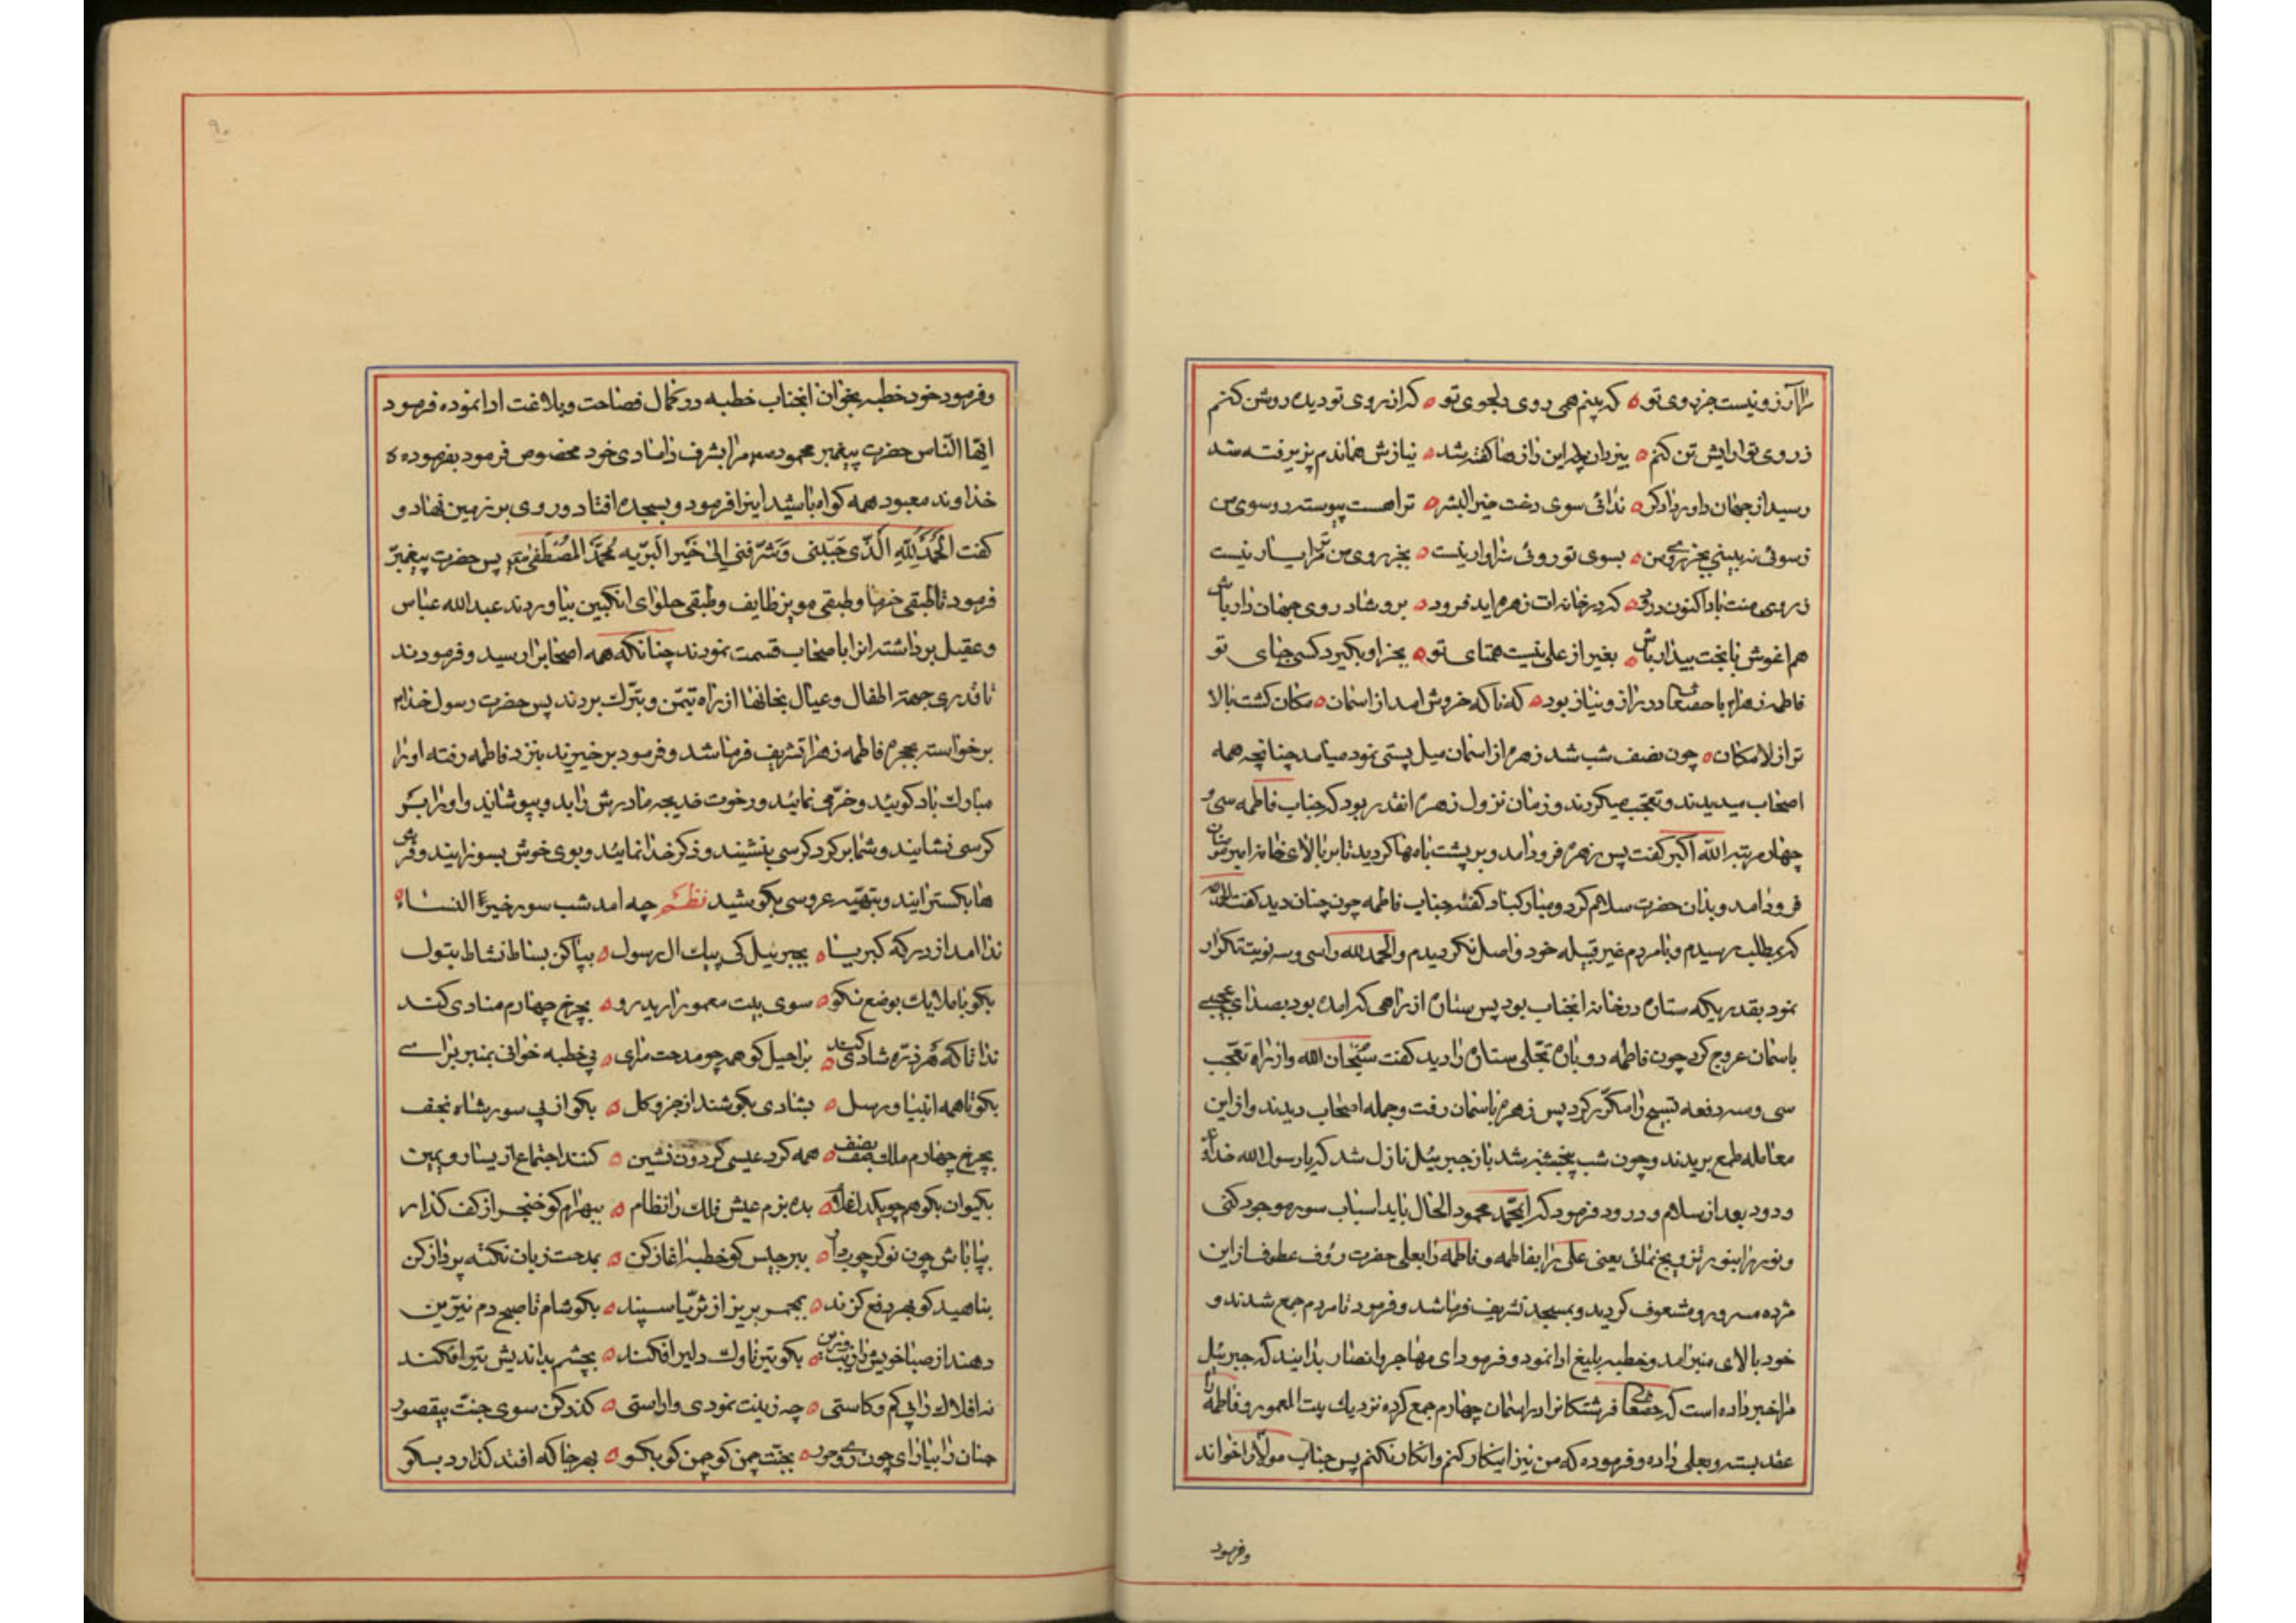 مرا آرزو نیست جز روی تو ه که بینم همی روی دلجوی تو ه که از روی تو دیده روشن کنم
ز روی تو آرایش تن کنم ه بیزدان چو این راز ها گفته شد ه نیازش هماندم پزیرفته شد
رسید از جهان داور دادکر ه ندائی سوی دخت خیر البشر ه ترا هست پیوسته رو سوی من
ز سوئی نه بینی بجز روی من ه بسوی تو روئی سزاوار نیست ه بجز روی من مر ترا یار نیست
ز روی منت باد اکنون درود ه که در خانه‌ات زهره اید فرود ه برو شاد روی جهان دار باش
هم اغوش با بخت بیدار باش ه بغیر از علی نیست همتای تو ه بجز او بگیرد کسی جای تو
فاطمه زهرا با حقتعالی در راز و نیاز بود ه که ناکه خروش امد از اسمان ه مکان کشت بالا
تر از لامکان ه چون نصف شب شد زهره از اسمان میل پستی نمود میامد چنانچه همه
اصحاب میدیدند و تعجب میکردند و زمان نزول زهره انقدر بود که جناب فاطمه سی و
چهار مرتبه الله اکبر کفت پس زهره فرود امد و بر پشت بامها کردید تا بر بالای خانه امیر مومنان
فرود امد و بدان حضرت سلام کرد و مبارکباد کفته جناب فاطمه چون چنان دید کفت الحمد لله
که بمطلب رسیدم و با مردم غیر قبیله خود واصل نکردیدم و الحمد لله را سی و سه نوبت تکرار
نمود بقدریکه ستاره در خانه انجناب بود پس ستاره از راهی که امده بود بصدای عجیبی
باسمان عروج کرد چون فاطمه دوباره تجلی ستاره را دید کفت سبحان الله و از راه تعجب
سی و سه دفعه تسبیح را مکرر کرد پس زهره باسمان رفت و جمله اصحاب دیدند و از این
معامله طمع بریدند و چون شب پنجشنبه شد باز جبرئیل نازل شد که یا رسول الله خدای
ودود بعد از سلام و درود فرمود که ای محمد محمود الحال باید اسباب سور موجود کنی
و نور را بنور تزویج نمائی یعنی علی را بفاطمه و فاطمه را بعلی حضرت رؤف عطوف از این
مژده مسرور و مشعوف کردید و بمسجد تشریف فرما شد و فرمود تا مردم جمع شدند و
خود بالای منبر امد و خطبه بلیغ ادا نمود و فرمود ای مهاجر و انصار بدانید که جبرئیل
مرا خبر داده است که حقتعالی فرشتکانرا در اسمان چهارم جمع کرده نزدیك بیت المعمور و فاطمه را
عقد بسته و بعلی داده و فرموده که من نیز اینکار کنم و انکار نکنم پس جناب مولا را خواند
وفرمود
۹۰
و فرمود خود خطبه بخوان انجناب خطبه در کمال فصاحت و بلاغت ادا نموده فرمود
ایها الناس حضرت پیغمبر محمود مرا بشرف دامادی خود مخصوص فرمود بفرموده
خداوند معبود همه کواه باشید اینرا فرمود و بسجده افتاد و روی بر زمین نهاد و
کفت الحمد لله الذی حببنی و شرفنی الی خیر البریه محمد المصطفی پس حضرت پیغمبر
فرمود تا طبقی خرما و طبقی مویز طایف و طبقی حلوای انکبین بیاوردند عبد الله عباس
و عقیل برداشته انرا باصحاب قسمت نمودند چنانکه همه اصحابرا رسید و فرمودند
تا قدری جهة اطفال و عیال بخانها از راه تیمن و تبرك بردند پس حضرت رسول خدا
برخواسته بحجره فاطمه زهرا تشریف فرما شد و فرمود برخیزند بنزد فاطمه رفته او را
مبارك باد کویند و خرمی نمایند و رخوت خدیجه مادرش را بدو بپوشانید و او را بر
کرسی نشانید و شما بر کرد کرسی بنشینید و ذکر خدا نمایید و بوی خوش بسوزانید و فرش
ها بکسترانید و بتهیه عروسی بکوشید نظم چه امد شب سور خیر النساء ه
ندا امد از درکه کبریا ه بجبرییل کی پیك ال رسول ه بپا کن بساط نشاط بتول
بکو با ملایك بوضع نکو ه سوی بیت معمور ارید رو ه بچرخ چهارم منادی کند
ندا تا که هر ذره شادی کند ه براحیل کو همچو مدحت سرای ه پی خطبه خوانی بمنبر برای
بکو تا همه انبیا و رسل ه بشادی بکوشند از جزو کل ه بکو از پی سور شاه نجف
بچرخ چهارم ملك صف بصف ه همه کرد عیسی کردون نشین ه کنند اجتماع از یسار و یمین
بکیوان بکو هم چو یکدل غلام ه بده بزم عیش فلك را نظام ه ببهرام کو خنجر از کف کذار
بپا باش چون نوکر چوبدار ه ببرجیس کو خطبه اغاز کن ه بمدحت زبان نکته پرداز کن
بناهید کو بهر دفع کزند ه بمجمر بریز از ثریا سپند ه بکو شام تا صبح دم نیرین
دهند از ضیا خویش را زیب و زین ه بکو تیر ناوك دلیر افکند ه بچشم بداندیش تیر افکند
نه افلاك را بی کم و کاستی ه چه زینت نمودی و اراستی ه کذر کن سوی جنت بیقصور
جنان را بیارای چون روی حور ه بجنت چمن کو چمن کو بکو ه بهر جا که افتد کذارد بسکو